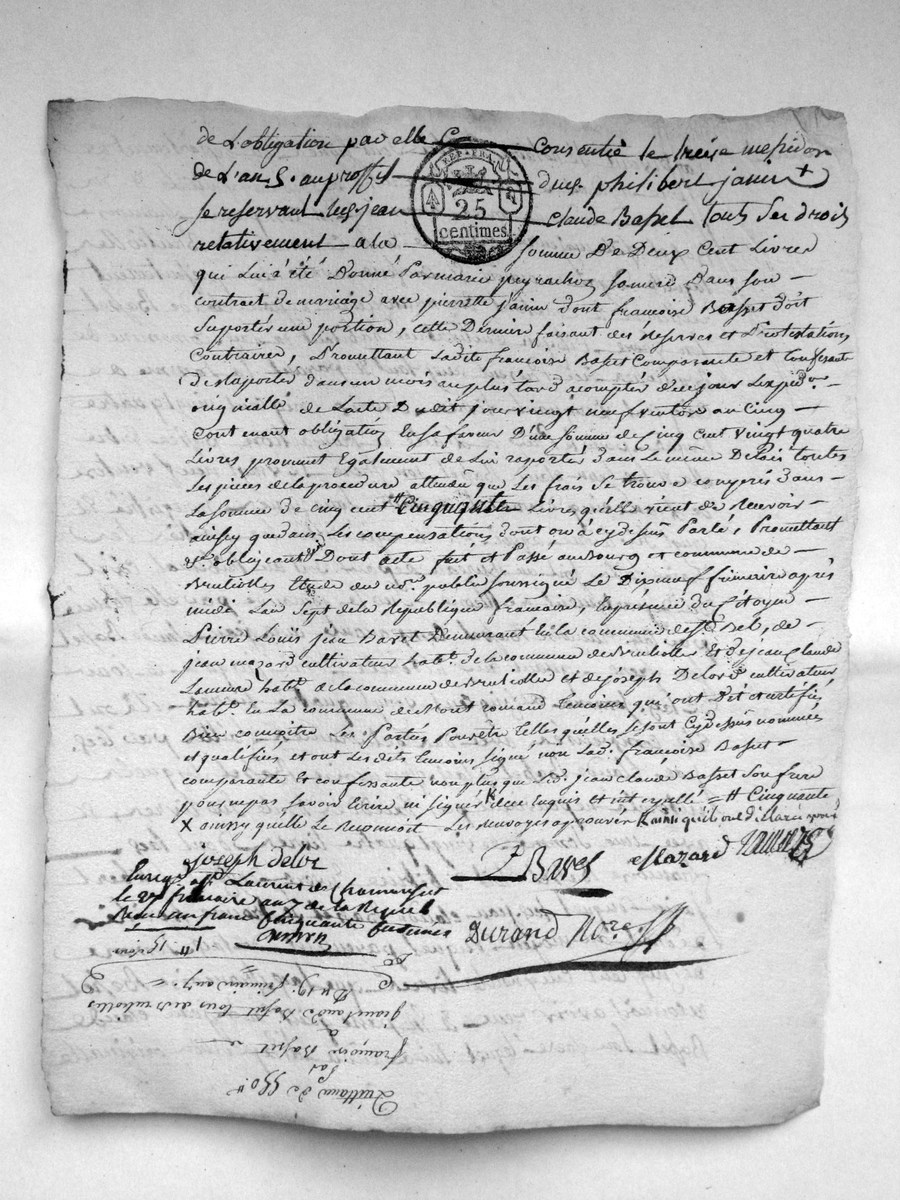 de L'obligation par elle Consentie le treise messidor
de L'an 5. au proffit dud. philibert janin +
REP. FRA.
25
centimes
se reservant led. jean claude Basset tous ses droits
relativement a la somme De Deux Cent Livres
qui Lui à été Donné Par marie peyrachoz sa mere Dans son
contract de mariage avec pierrette janin dont françoise Basset doit
Supporter une portion, cette Derniere faisant des réserves et Protestations
Contraires, Promettant Ladite françoise Basset Comparante et Confessante
de rapporter dans un mois au plus tard a compter de ce jour
originalle de Lacte Dudit jour vingt neuf ventose an Cinq
Contenant obligation en sa faveur D'une somme de Cinq Cent vingt quatre
Livres promet Egalement de Lui raporter dans Le même Delais toutes
Les pieces de la procedure attendu que Les frais Se trouve compris dans
La somme de cinq cent Cinquante Livres quelle vient de Recevoir
ainssy que dans Les Compensations dont on à cy dessus Parlé, Promettant
&c. obligeant &c. Dont acte fait et Passé au Bourg et commune de
Brulliolles Etude du no.re public soussigné Le Dix neuf frimaire après
midi Lan Sept de la République francaise, En présence du Citoyen
Pierre Louis jean Baret Demeurant En la commune de St. Bel, de
jean mazard cultivateur hab.t de la commune de Brulliolles Et de jean Claude
hab.t de la commune de Brulliolles et de joseph Delorme cultivateur
hab.t En La commune de Mont romand temoins qui ont Dit et certifié
Bien connoître Les Parties Pour être telles qu'elles se sont Cy dessus nommées
et qualifiées et ont Les dits temoins signé non Lad. françoise Basset
comparante Et confessante non plus que Led. jean claude Basset Son frere
pour ne pas savoir Ecrire ni signer de ce Enquis et interpellé = # Cinquante
X ainssy qu'elle Le Reconnoit Les Renvoys approuvés K ainsi qu'ils ont déclaré
joseph delor
P Bares
Mazard
Enreg. a St. Laurent de Chamousset
le 27 frimaire an 7 de la Repub.
Reçu un franc Cinquante centimes
Durand No.re
Du 19 frimaire an 7. =
jean claude Basset tous de Brulliolles
a
françoise Basset
Par
Quittance de 550 #